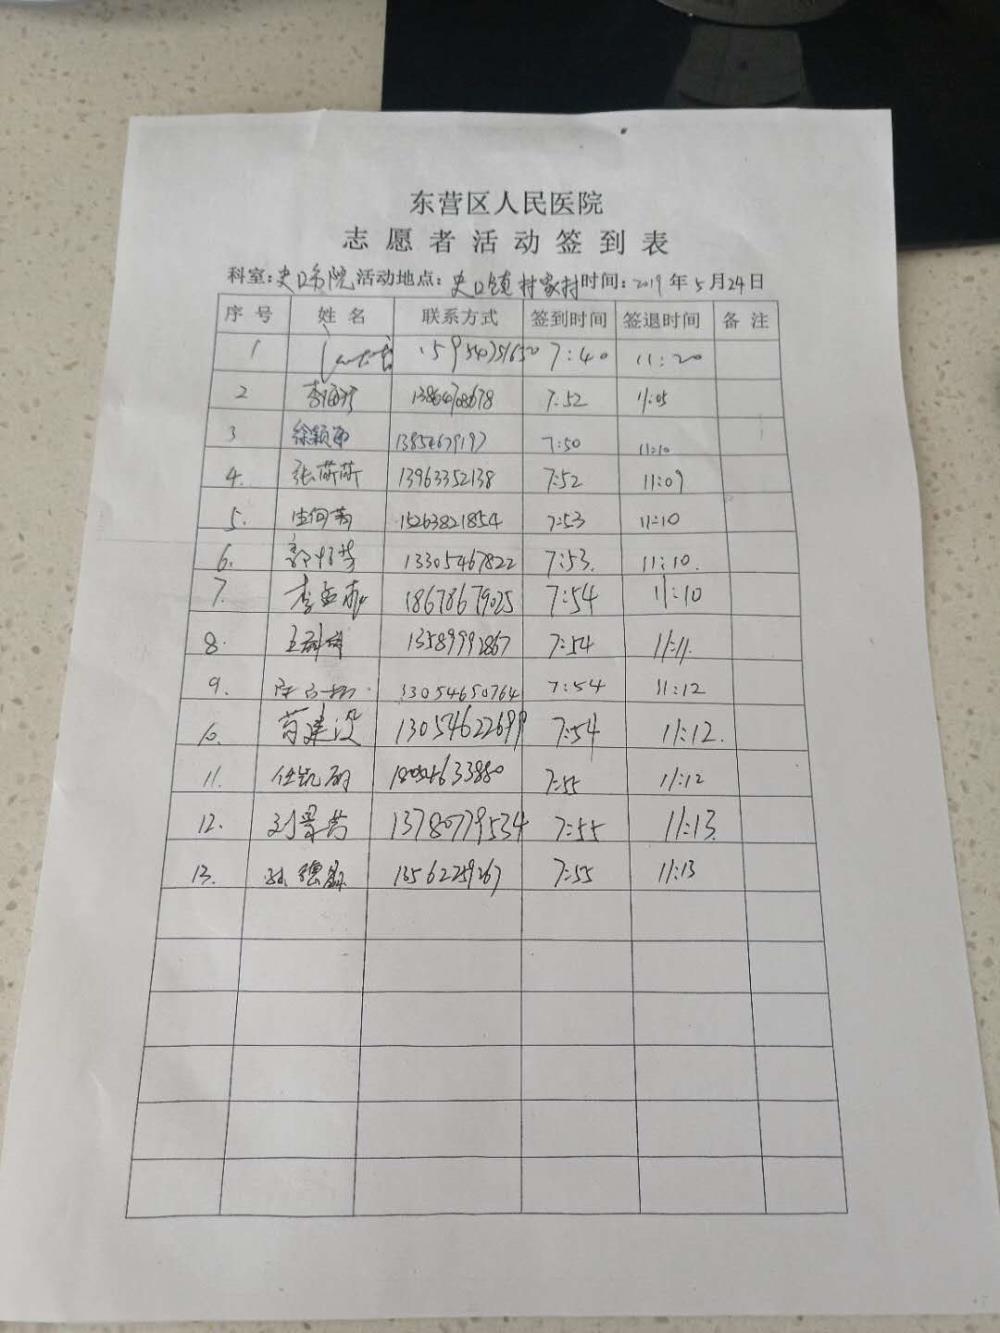 东营区人民医院
志愿者活动签到表
科室:史口分院 活动地点:史口镇村家村 时间:2019年5月24日
序号 姓名 联系方式 签到时间 签退时间 备注
1 15954051650 7:40 11:20
2 7:52 11:05
3 徐颖 7:50 11:10
4. 张茹茹 13963352138 7:52 11:09
5. 15263821854 7:53 11:10
6. 13305467822 7:53. 11:10.
7. 李孟 18678679025 7:54 11:10
8. 王 13589992867 7:54 11:11.
9. 13054650764 7:54 11:12
10. 建设 13054622699 7:54 11:12.
11. 任凯 7:55 11:12
12. 刘 13780779534 7:55 11:13
13. 孙德 13562259267 7:55 11:13